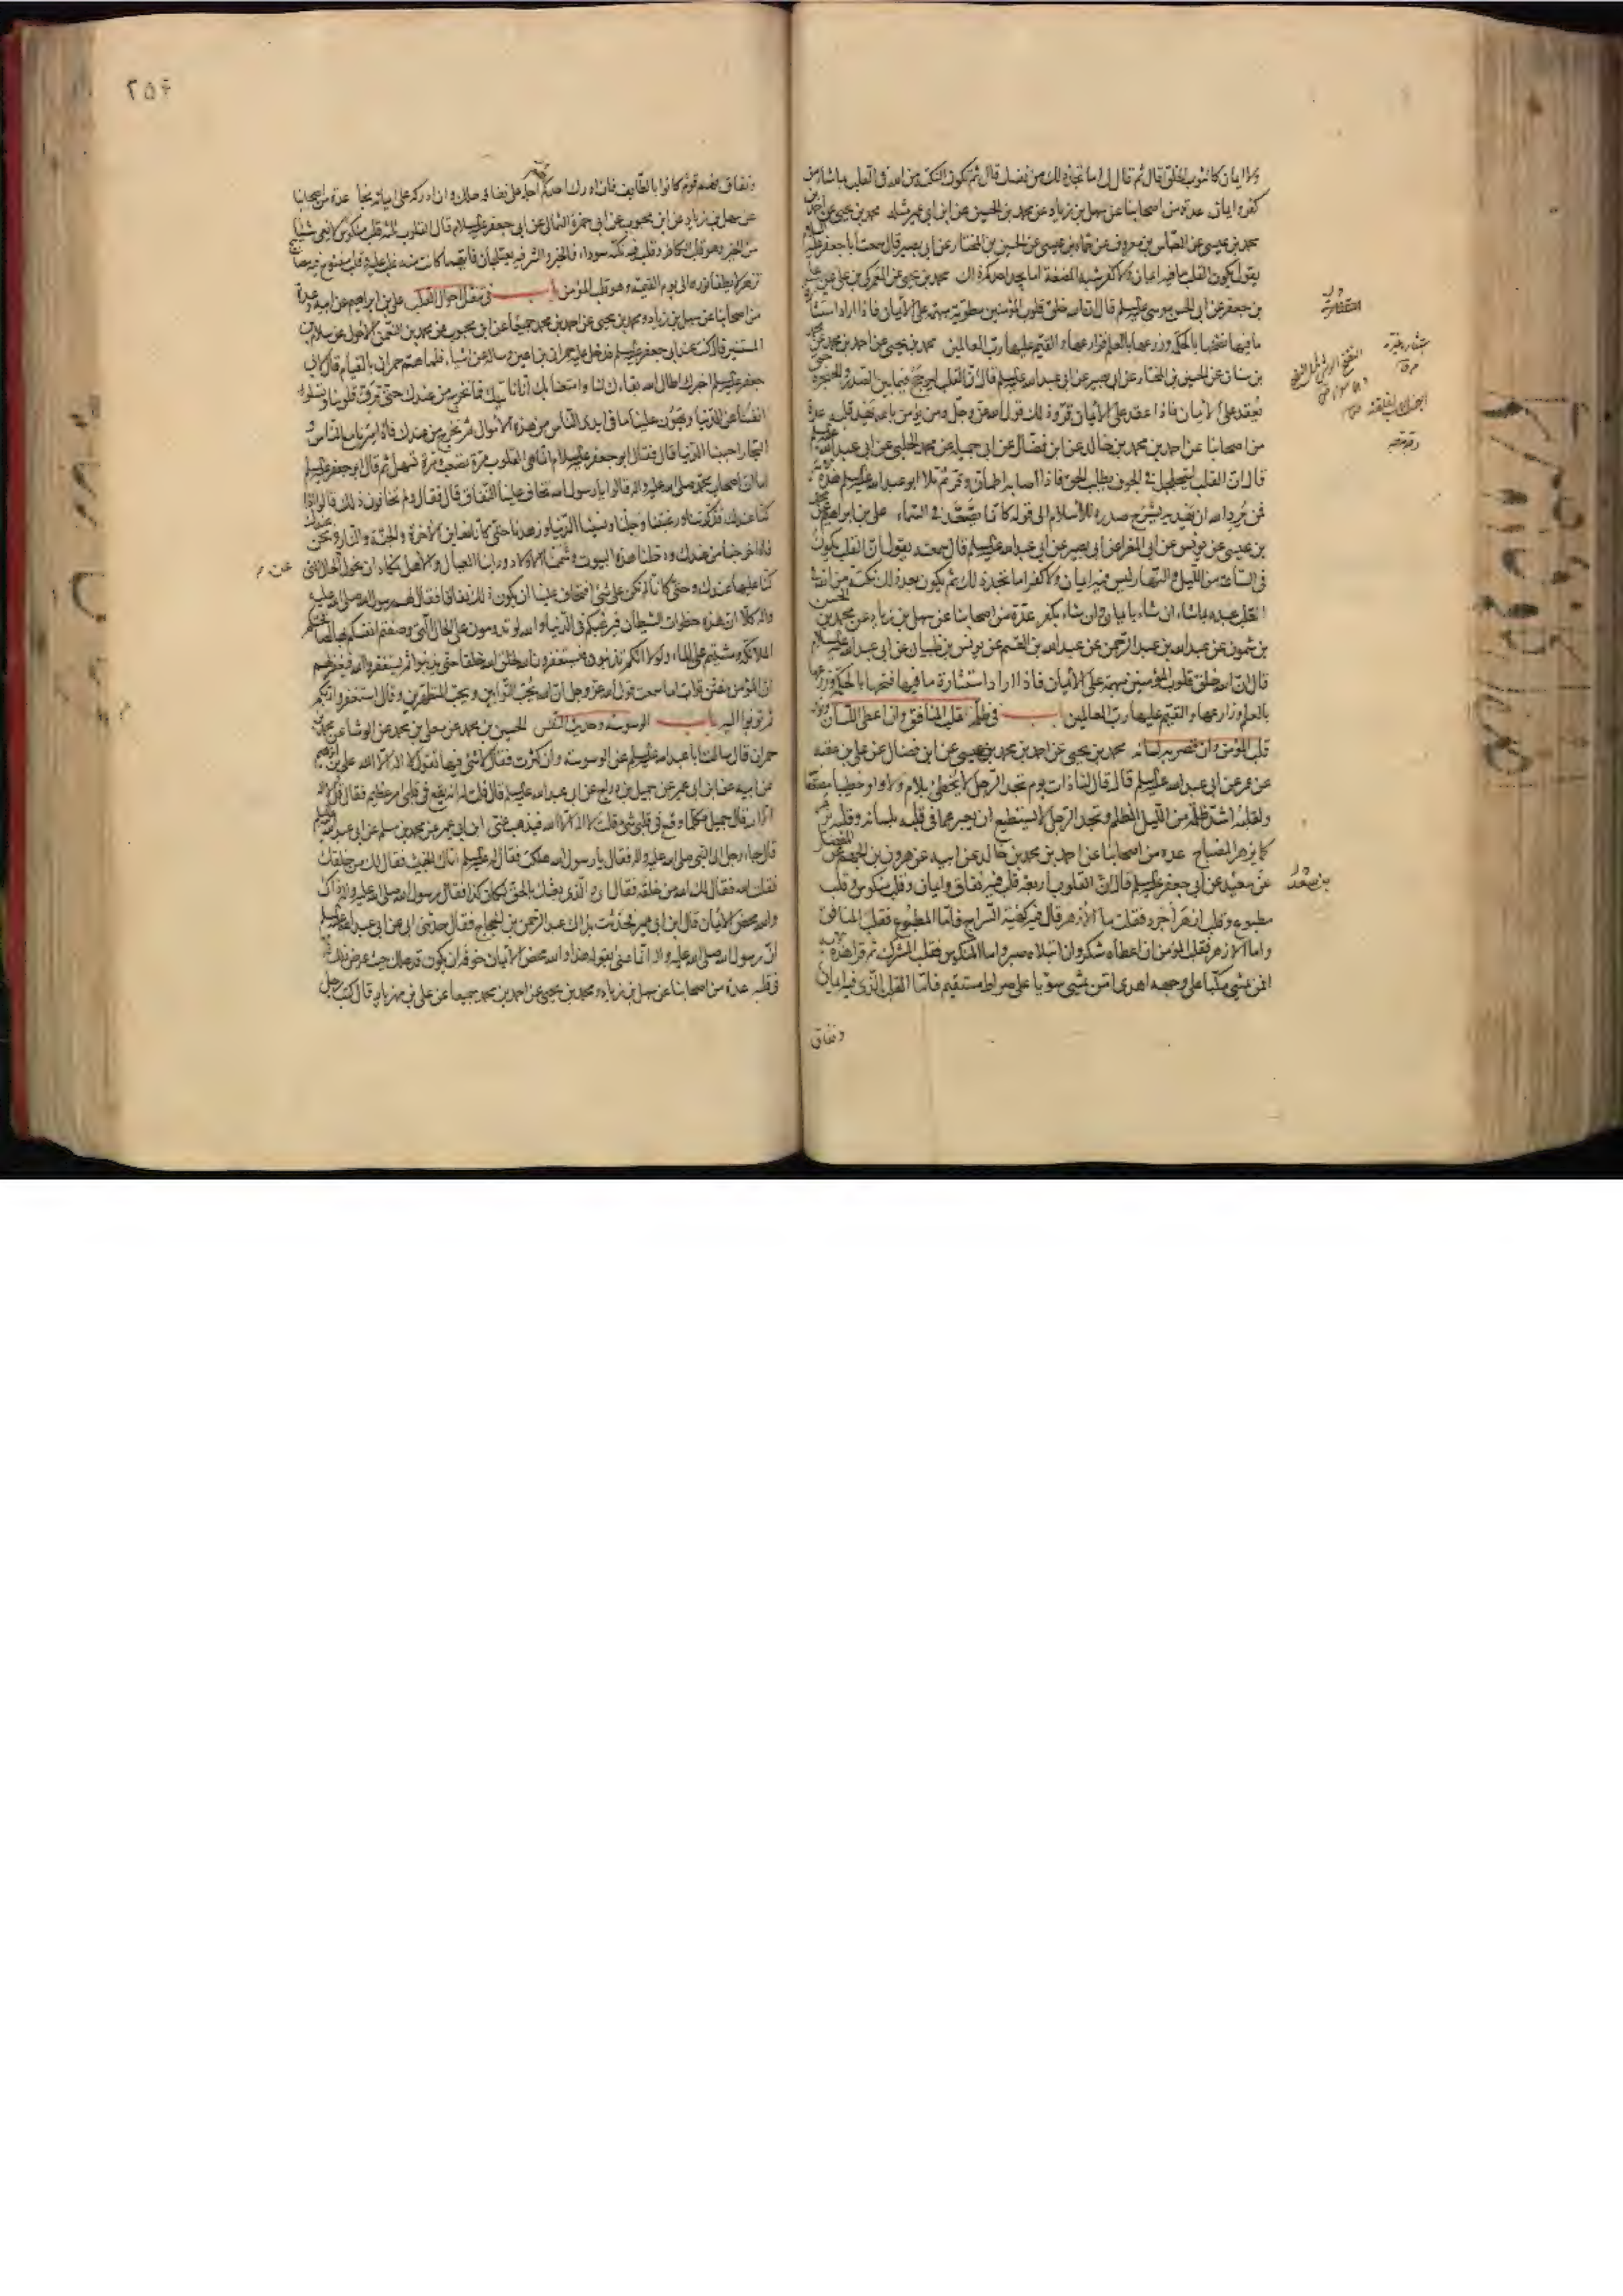 ولا ايمان كالثوب الخلق قال ثم قال لى اما تجد ذلك من نفسك قال ثم تكون النكتة من الله فى القلب بما شاء من
كفر و ايمان عدة من اصحابنا عن سهل بن زياد عن محمد بن الحسين عن ابن ابى عمير مثله محمد بن يحيى عن احمد بن
محمد بن عيسى عن العباس بن معروف عن حماد بن عيسى عن الحسين بن المختار عن ابى بصير قال سمعت ابا جعفر عليه السلم
يقول يكون القلب ما فيه ايمان ولا كفر شبه المضغة اما يجد احدكم ذلك محمد بن يحيى عن العمركى بن على عن على
بن جعفر عن ابى الحسن موسى عليه السلم قال ان الله خلق قلوب المؤمنين مطوية مبهمة على الايمان فاذا اراد استنارة
ما فيها نضحها بالحكمة وزرعها بالعلم وزارعها والقيم عليها رب العالمين محمد بن يحيى عن احمد بن محمد عن محمد
بن سنان عن الحسين بن المختار عن ابى بصير عن ابى عبد الله عليه السلم قال ان القلب ليرجج فيما بين الصدر والحنجرة حتى
يعقد على الايمان فاذا عقد على الايمان قر وذلك قول الله عز وجل ومن يؤمن بالله يهد قلبه عدة
من اصحابنا عن احمد بن محمد بن خالد عن ابن فضال عن ابى جميلة عن محمد الحلبى عن ابى عبد الله عليه السلم
قال ان القلب ليتجلجل فى الجوف يطلب الحق فاذا اصابه اطمان وقر ثم تلا ابو عبد الله عليه السلم هذه الاية
فمن يرد الله ان يهديه يشرح صدره للاسلام الى قوله كانما يصعد فى السماء على بن ابراهيم عن محمد
بن عيسى عن يونس عن ابى المغرا عن ابى بصير عن ابى عبد الله عليه السلم قال سمعته يقول ان القلب يكون
فى الساعة من الليل والنهار ليس فيه ايمان ولا كفر اما تجد ذلك ثم يكون بعد ذلك نكتة من الله فى
القلب عبده بما شاء ان شاء بايمان وان شاء بكفر عدة من اصحابنا عن سهل بن زياد عن محمد بن الحسن
بن شمون عن عبد الله بن عبد الرحمن عن عبد الله بن القسم عن يونس بن ظبيان عن ابى عبد الله عليه السلام
قال ان الله خلق قلوب المؤمنين مبهمة على الايمان فاذا اراد استنارة ما فيها فتحها بالحكمة وزرعها
بالعلم وزارعها والقيم عليها رب العالمين باب فى ظلمة قلب المنافق وان اعطى اللسان ونور
قلب المؤمن وان قصر به لسانه محمد بن يحيى عن احمد بن محمد بن عيسى عن ابن فضال عن على بن عقبه
عن عمر عن ابى عبد الله عليه السلم قال قال لنا ذات يوم تجد الرجل لا يخطئ بلام ولا واو خطيبا مصقعا
ولقلبه اشد ظلمة من الليل المظلم وتجد الرجل لا يستطيع ان يعبر عما فى قلبه بلسانه وقلبه يزهر
كما يزهر المصباح عدة من اصحابنا عن احمد بن محمد بن خالد عن ابيه عن هرون بن الجهم عن المفضل
عن سعيد عن ابى جعفر عليه السلم قال ان القلوب اربعة قلب فيه نفاق وايمان وقلب منكوس وقلب
بن سعد
مطبوع وقلب ازهر اجرد فقلت ما الازهر قال فيه كهيئة السراج فاما المطبوع فقلب المنافق
واما الازهر فقلب المؤمن ان اعطاه شكر وان ابتلاه صبر واما المنكوس فقلب المشرك ثم قرا هذه الاية
افمن يمشى مكبا على وجهه اهدى امن يمشى سويا على صراط مستقيم فاما القلب الذى فيه ايمان
ونفاق
٢٥٤
ونفاق فهم قوم كانوا بالطايف فان ادرك احدهم اجله على نفاقه هلك وان ادركه على ايمانه نجا عدة من اصحابنا
عن سهل بن زياد عن ابن محبوب عن ابى حمزة الثمالى عن ابى جعفر عليه السلام قال القلوب ثلثة قلب منكوس لا يعى شيئا
من الخير وهو قلب الكافر وقلب فيه نكتة سوداء فالخير والشر فيه يعتلجان فايهما كانت منه غلب عليه وقلب مفتوح فيه مصابيح
تزهر لا يطفأ نوره الى يوم القيمة وهو قلب المؤمن باب فى تنقل احوال القلب على بن ابراهيم عن ابيه وعدة
من اصحابنا عن سهل بن زياد ومحمد بن يحيى عن احمد بن محمد جميعا عن ابن محبوب عن محمد بن النعمن الاحول عن سلام بن
المستنير قال كنت عند ابى جعفر عليه السلم فدخل عليه حمران بن اعين وساله عن اشياء فلما هم حمران بالقيام قال لابى
جعفر عليه السلم اخبرك اطال الله بقاءك لنا وامتعنا بك انا ناتيك فما نخرج من عندك حتى ترق قلوبنا وتسلو
انفسنا عن الدنيا ويهون علينا ما فى ايدى الناس من هذه الاموال ثم نخرج من عندك فاذا صرنا مع الناس و
التجار احببنا الدنيا قال فقال ابو جعفر عليه السلام انما هى القلوب مرة تصعب ومرة تسهل ثم قال ابو جعفر عليه السلم
اما ان اصحاب محمد صلى الله عليه واله قالوا يا رسول الله نخاف علينا النفاق قال فقال ولم تخافون ذلك قالوا اذا
كنا عندك فذكرتنا ورغبتنا وجلنا ونسينا الدنيا وزهدنا حتى كانا نعاين الاخرة والجنة والنار ونحن عندك
فاذا خرجنا من عندك ودخلنا هذه البيوت وشممنا الاولاد وراينا العيال والاهل يكاد ان نحول عن الحال التى
كنا عليها عندك وحتى كانا لم نكن على شئ افتخاف علينا ان يكون ذلك نفاق فقال لهم رسول الله صلى الله عليه
واله كلا ان هذه خطوات الشيطان فيرغبكم فى الدنيا والله لو تدومون على الحال التى وصفتم انفسكم بها لصافحتكم
الملائكة ومشيتم على الماء ولولا انكم تذنبون فتستغفرون الله لخلق الله خلقا حتى يذنبوا ثم يستغفروا الله فيغفر لهم
ان المؤمن مفتن تواب اما سمعت قول الله عز وجل ان الله يحب التوابين ويحب المتطهرين وقال استغفروا ربكم
ثم توبوا اليه باب الوسوسة وحديث النفس الحسين بن محمد عن معلى بن محمد عن الوشا عن محمد بن
حمران قال سالت ابا عبد الله عليه السلم عن الوسوسة وان كثرت فقال لا شئ فيها تقول لا اله الا الله على بن ابراهيم
عن ابيه عن ابن ابى عمير عن جميل بن دراج عن ابى عبد الله عليه السلم قال قلت له انه يقع فى قلبى امر عظيم فقال قل لا اله
الا الله قال جميل فكلما وقع فى قلبى شئ قلت لا اله الا الله فيذهب عنى ابن ابى عمير عن محمد بن مسلم عن ابى عبد الله عليه السلم
قال جاء رجل الى النبى صلى الله عليه واله فقال يا رسول الله هلكت فقال له عليه السلم اتاك الخبيث فقال لك من خلقك
فقلت الله فقال لك الله من خلقه فقال اى والذى بعثك بالحق لكان كذا فقال رسول الله صلى الله عليه واله ذاك
والله محض الايمان قال ابن ابى عمير فحدثت بذلك عبد الرحمن بن الحجاج فقال حدثنى ابى عن ابى عبد الله عليه السلم
ان رسول الله صلى الله عليه واله انما عنى بقوله هذا والله محض الايمان خوفه ان يكون قد هلك حيث عرض ذلك
فى قلبه عدة من اصحابنا عن سهل بن زياد ومحمد بن يحيى عن احمد بن محمد جميعا عن على بن مهزيار قال كتب رجل